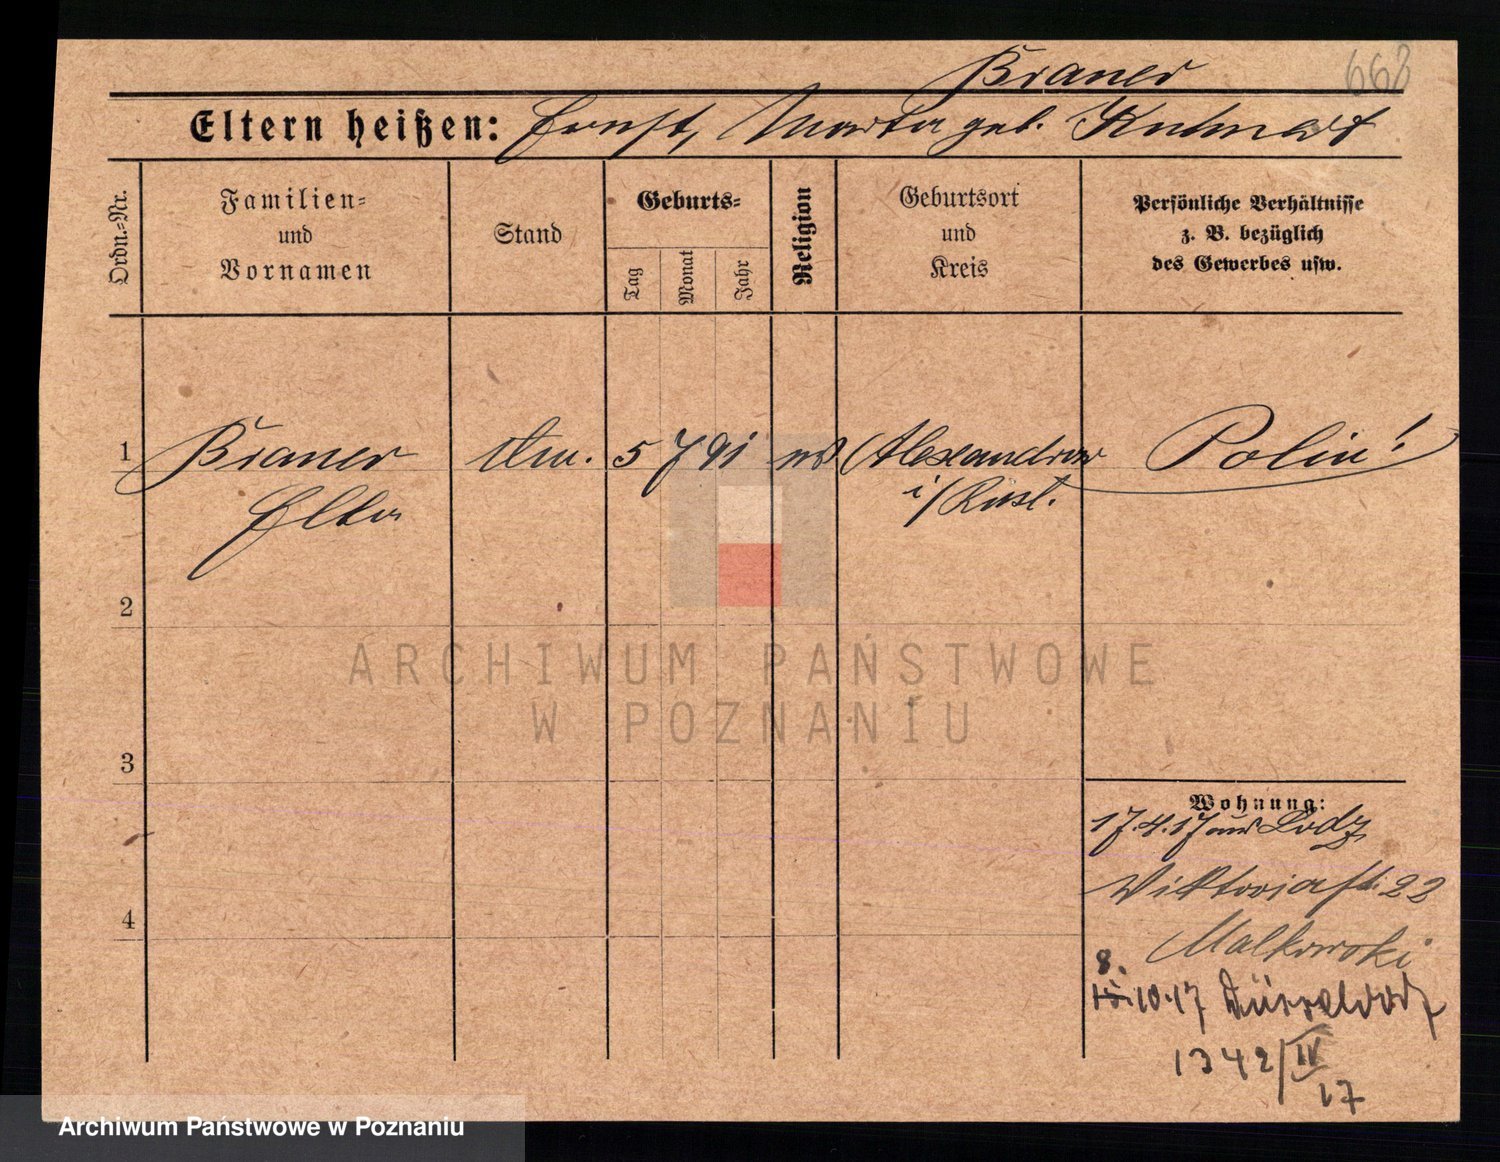 Brauer
668
Eltern heißen: Ernst, Marta geb.
Ordn.=Nr.
Familien=
und
Vornamen
Stand
Geburts=
Tag
Monat
Jahr
Religion
Geburtsort
und
Kreis
Persönliche Verhältnisse
z. B. bezüglich
des Gewerbes usw.
1 Brauer 5 7 91 Alexandrow Polin!
Elka i/Russl.
2
ARCHIWUM PAŃSTWOWE
W POZNANIU
3
Wohnung:
17.4.17 aus Lodz
Wiktoriastr. 22
4
Malkowski
8.
15.10.17 Düsseldorf
1342/IV
17
Archiwum Państwowe w Poznaniu